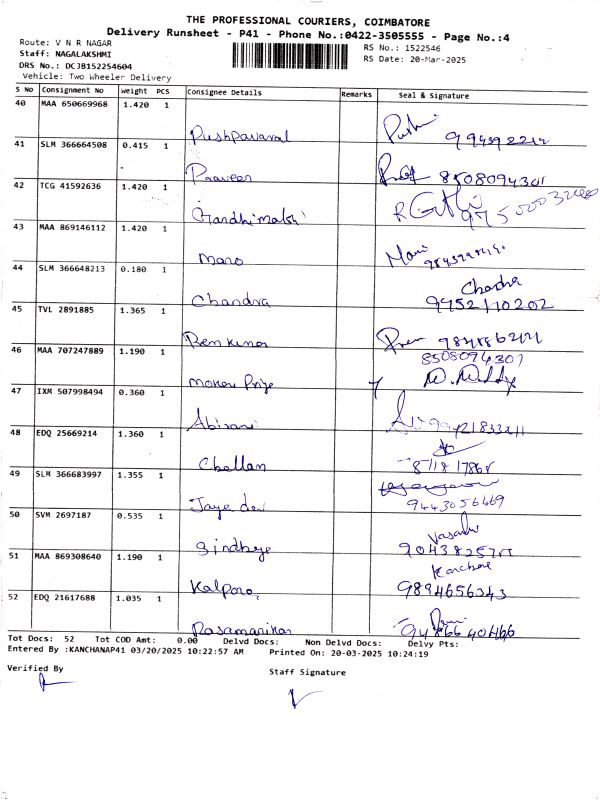 THE PROFESSIONAL COURIERS, COIMBATORE
Delivery Runsheet - P41 - Phone No.:0422-3505555 - Page No.:4
Route: V N R NAGAR
Staff: NAGALAKSHMI
DRS No.: DCJB152254604
Vehicle: Two Wheeler Delivery
RS No.: 1522546
RS Date: 20-Mar-2025
S No Consignment No Weight PCS Consignee Details Remarks Seal & Signature
40 MAA 650669968 1.420 1
Pushpavaval
41 SLM 366664508 0.415 1
Praveen 8508094301
42 TCG 41592636 1.420 1
Gandhimathi
43 MAA 869146112 1.420 1
Mano
44 SLM 366648213 0.180 1
Chandra Chandra
9952110202
45 TVL 2891885 1.365 1
Prem
46 MAA 707247889 1.190 1
8508094301
47 IXM 507998494 0.360 1
Abirami
48 EDQ 25669214 1.360 1
Chellan
49 SLM 366683997 1.355 1
Jaya devi 9443056469
50 SVM 2697187 0.535 1
51 MAA 869308640 1.190 1
Kalpana 9894656343
52 EDQ 21617688 1.035 1
Rasamanikan 9486640466
Tot Docs: 52 Tot COD Amt: 0.00 Delvd Docs: Non Delvd Docs: Delvy Pts:
Entered By :KANCHANAP41 03/20/2025 10:22:57 AM Printed On: 20-03-2025 10:24:19
Verified By
Staff Signature